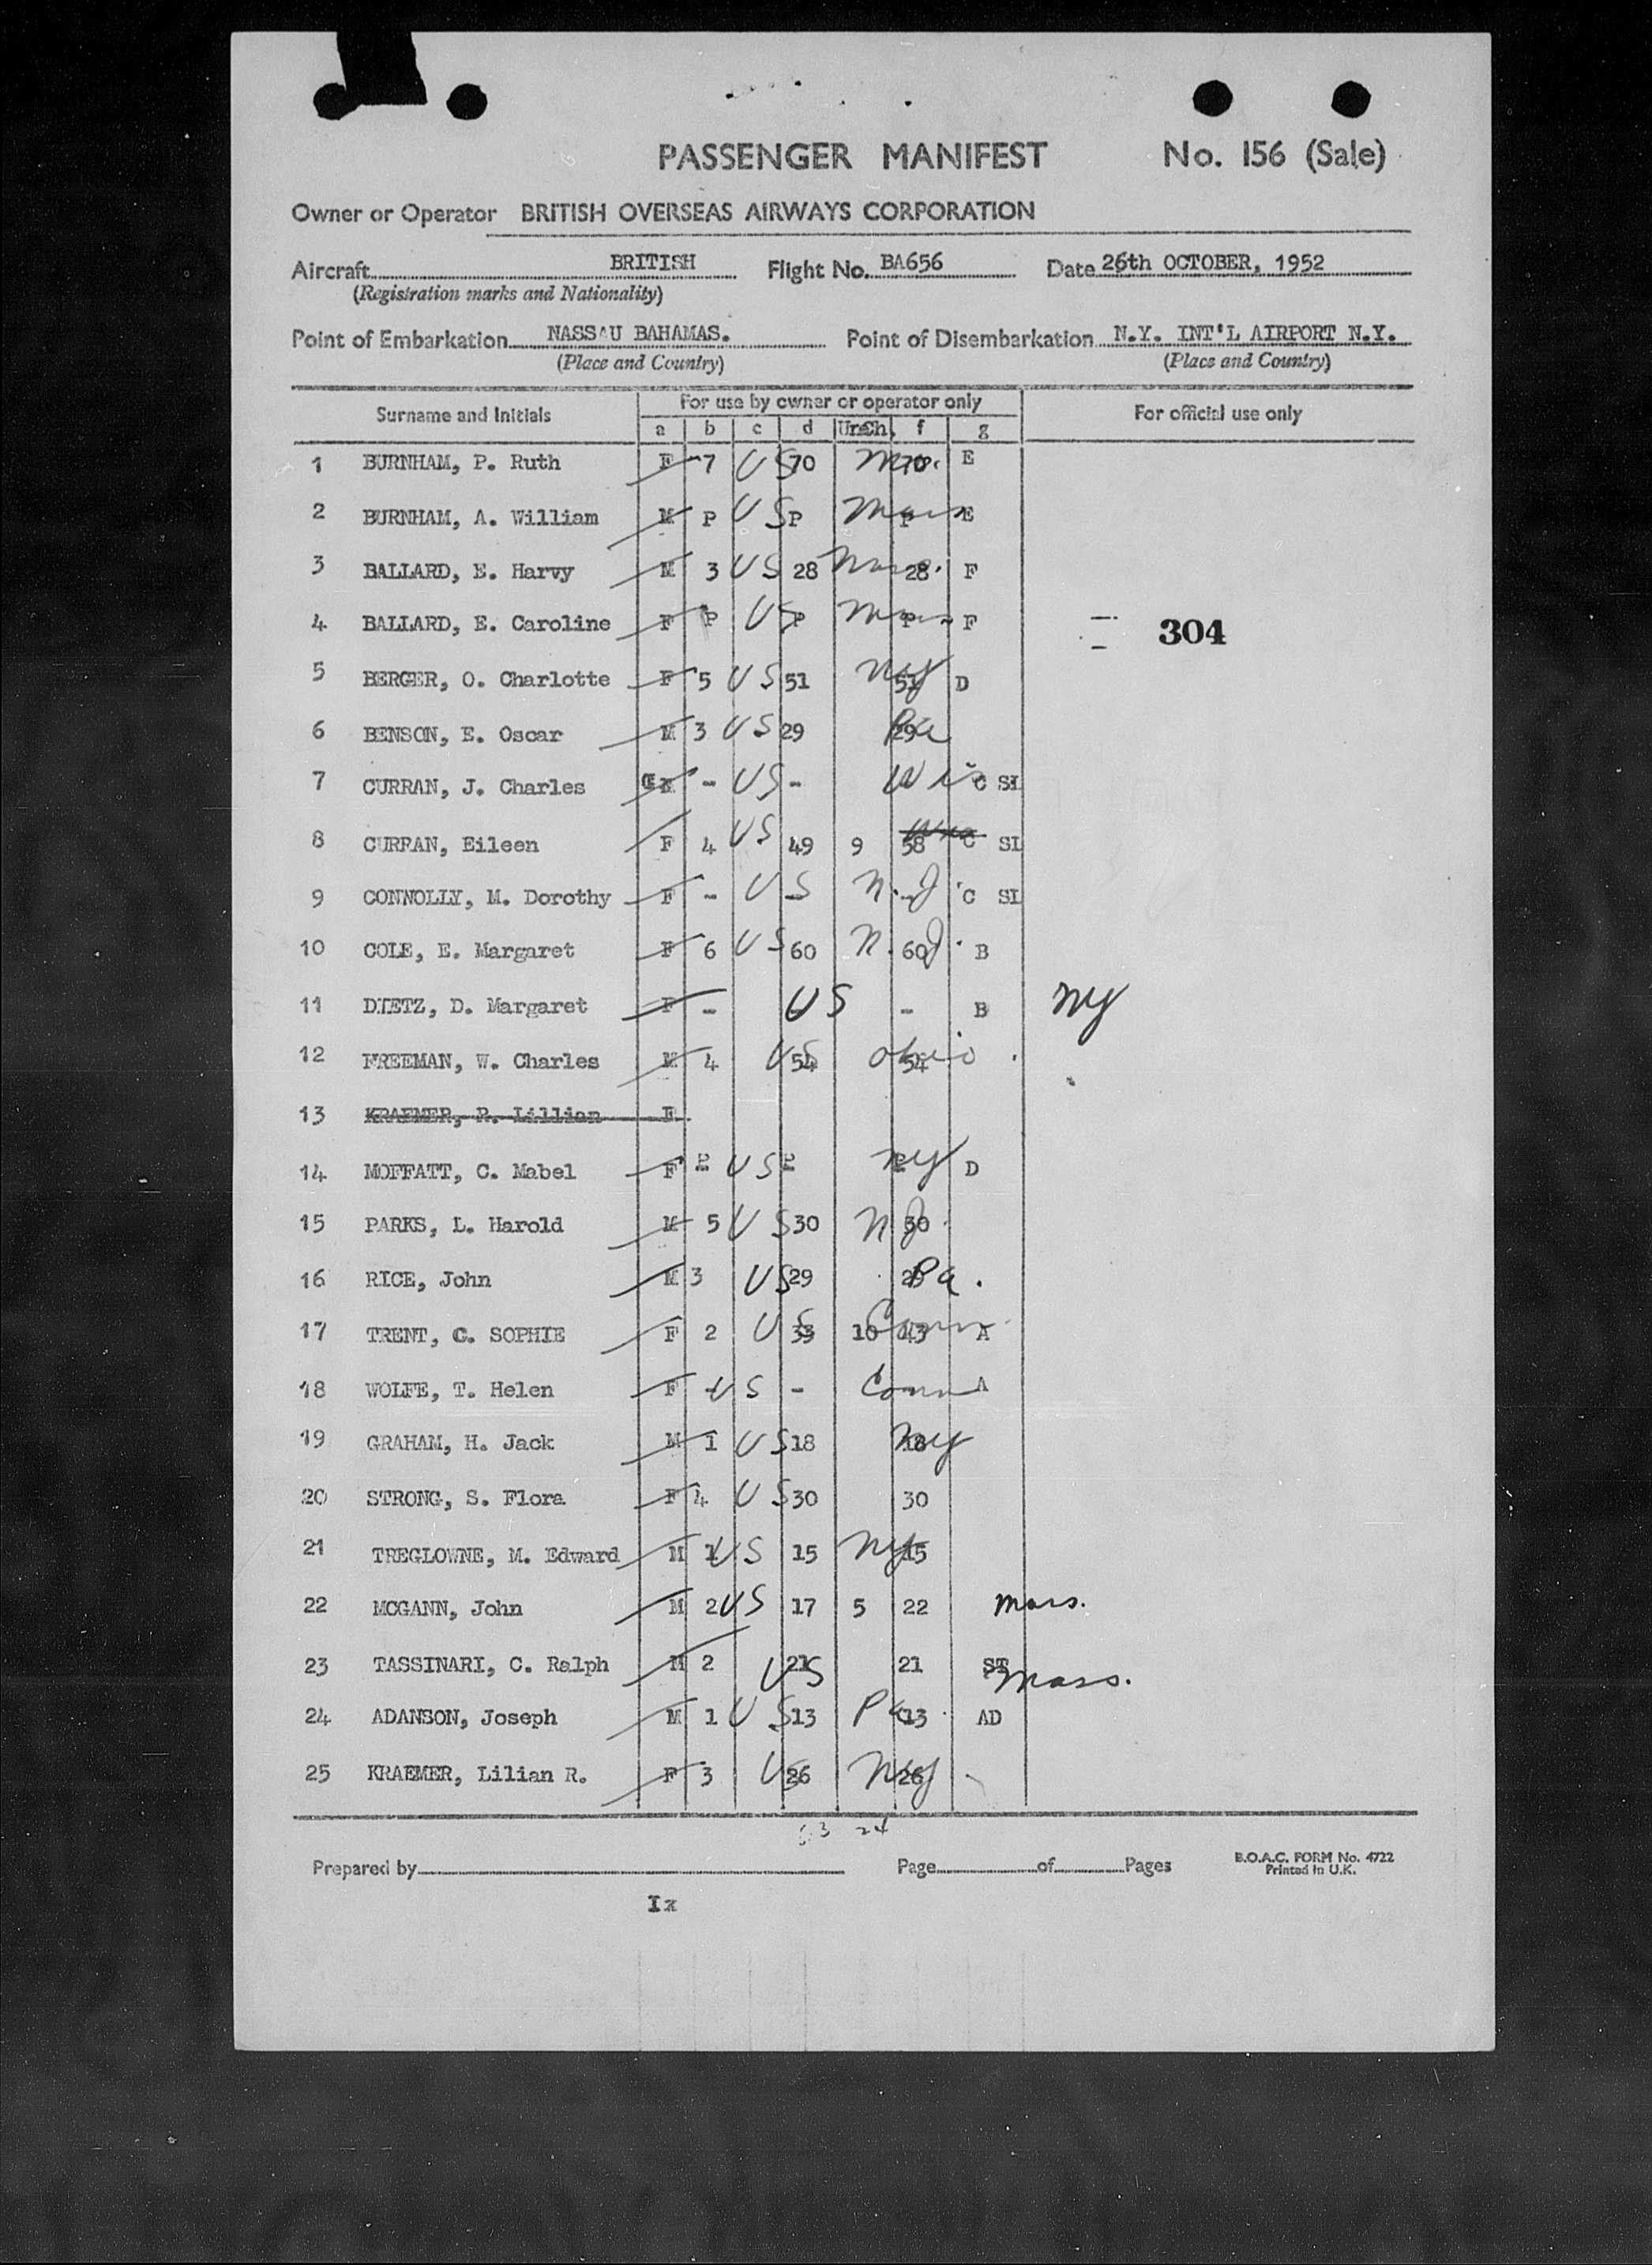 PASSENGER MANIFEST No. 156 (Sale)
Owner or Operator BRITISH OVERSEAS AIRWAYS CORPORATION
Aircraft BRITISH Flight No. BA656 Date 26th OCTOBER, 1952
(Registration marks and Nationality)
Point of Embarkation NASSAU BAHAMAS. Point of Disembarkation N.Y. INT'L AIRPORT N.Y.
(Place and Country) (Place and Country)
Surname and Initials For use by owner or operator only For official use only
a b c d f g
1 BURNHAM, P. Ruth F 7 US 70 70 E
2 BURNHAM, A. William M P US P Mass P E
3 BALLARD, E. Harvy M 3 US 28 Mass. 28 F
4 BALLARD, E. Caroline F P US P Mass P F
304
5 BERGER, O. Charlotte F 5 US 51 NY 51 D
6 BENSON, E. Oscar M 3 US 29 Pa 29
7 CURRAN, J. Charles M - US - Wis C SL
8 CURRAN, Eileen F 4 US 49 9 58 C SL
9 CONNOLLY, M. Dorothy F - US - N.J - C SL
10 COLE, E. Margaret F 6 US 60 N.J. 60 B
11 DIETZ, D. Margaret F - US - B NY
12 FREEMAN, W. Charles M 4 US 54 Ohio 54
13 KRAEMER, R. Lillian F
14 MOFFATT, C. Mabel F P US P NY D
15 PARKS, L. Harold M 5 US 30 NJ 30
16 RICE, John M 3 US 29 29 Pa.
17 TRENT, C. SOPHIE F 2 US 33 10 Conn 43 A
18 WOLFE, T. Helen F - US - Conn A
19 GRAHAM, H. Jack M 1 US 18 NY 18
20 STRONG, S. Flora F 4 US 30 30
21 TREGLOWNE, M. Edward M 1 US 15 NY 15
22 MCGANN, John M 2 US 17 5 22 Mass.
23 TASSINARI, C. Ralph M 2 US 21 21 ST Mass.
24 ADANSON, Joseph M 1 US 13 Pa. 13 AD
25 KRAEMER, Lilian R. F 3 US 26 NY 26
24
Prepared by Page of Pages B.O.A.C. FORM No. 4722
Printed in U.K.
Ix